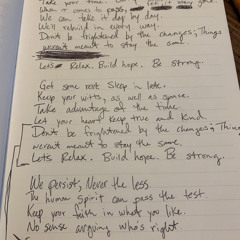 Take your time. Don't
When it comes to stay gone.
We can take it day by day.
We'll rebuild in every way.
Dont be frightened by the changes; Things
werent meant to stay the same.
Lets Relax. Build hope. Be strong.
Get some rest Sleep in late.
Keep your witts, as well as space.
Take advantage of the time
Let your heart keep true and kind.
Dont be frightened by the changes; Things
werent meant to stay the same.
Lets Relax. Build hope. Be strong.
We persist, Never the less.
The human Spirit can pass the test.
Keep your faith in what you like.
No sense arguing who's right.